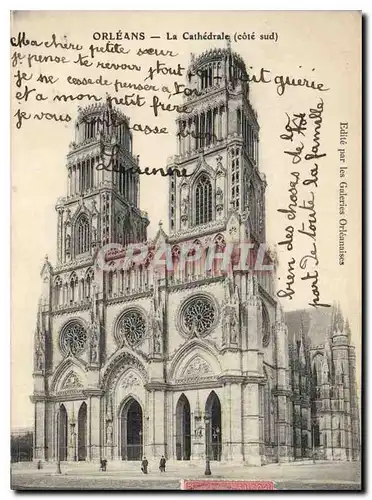 ORLÉANS — La Cathédrale (côté sud)
Ma chère petite sœur
je pense te revoir tout guérie
je ne cesse de penser a toi
et a mon petit frère
je vous embrasse
bien des choses de la
part de toute la famille
Edité par les Galeries Orléanaises
CARTOREUM